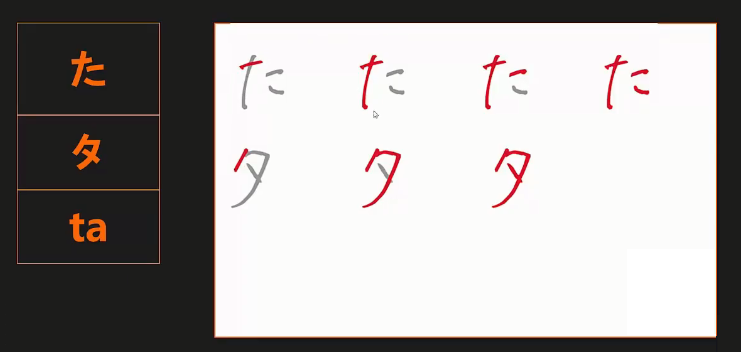 た
タ
ta
た た た た
タ タ タ